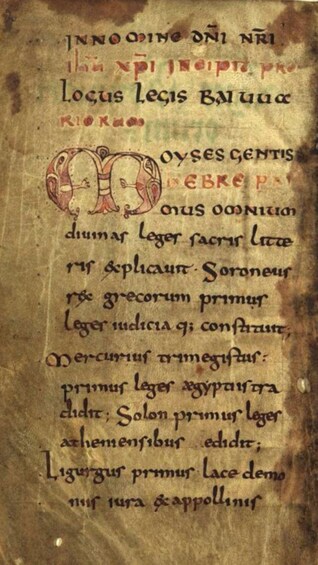 IN NOMINE DNI NRI
IHU XPI INCIPIT PRO
LOGUS LEGIS BAIUUA
RIORUM
MOYSES GENTIS
HEBREE PRI
MUS OMNIUM
divinas leges sacris litte
ris explicavit · Foroneus
rex grecorum primus
leges iudicia q; constituit;
Mercurius trimegistus:
primus leges ægyptiis tra
didit; Solon primus leges
atheniensibus edidit;
Ligurgus primus lacedemo
niis iura ex appollinis